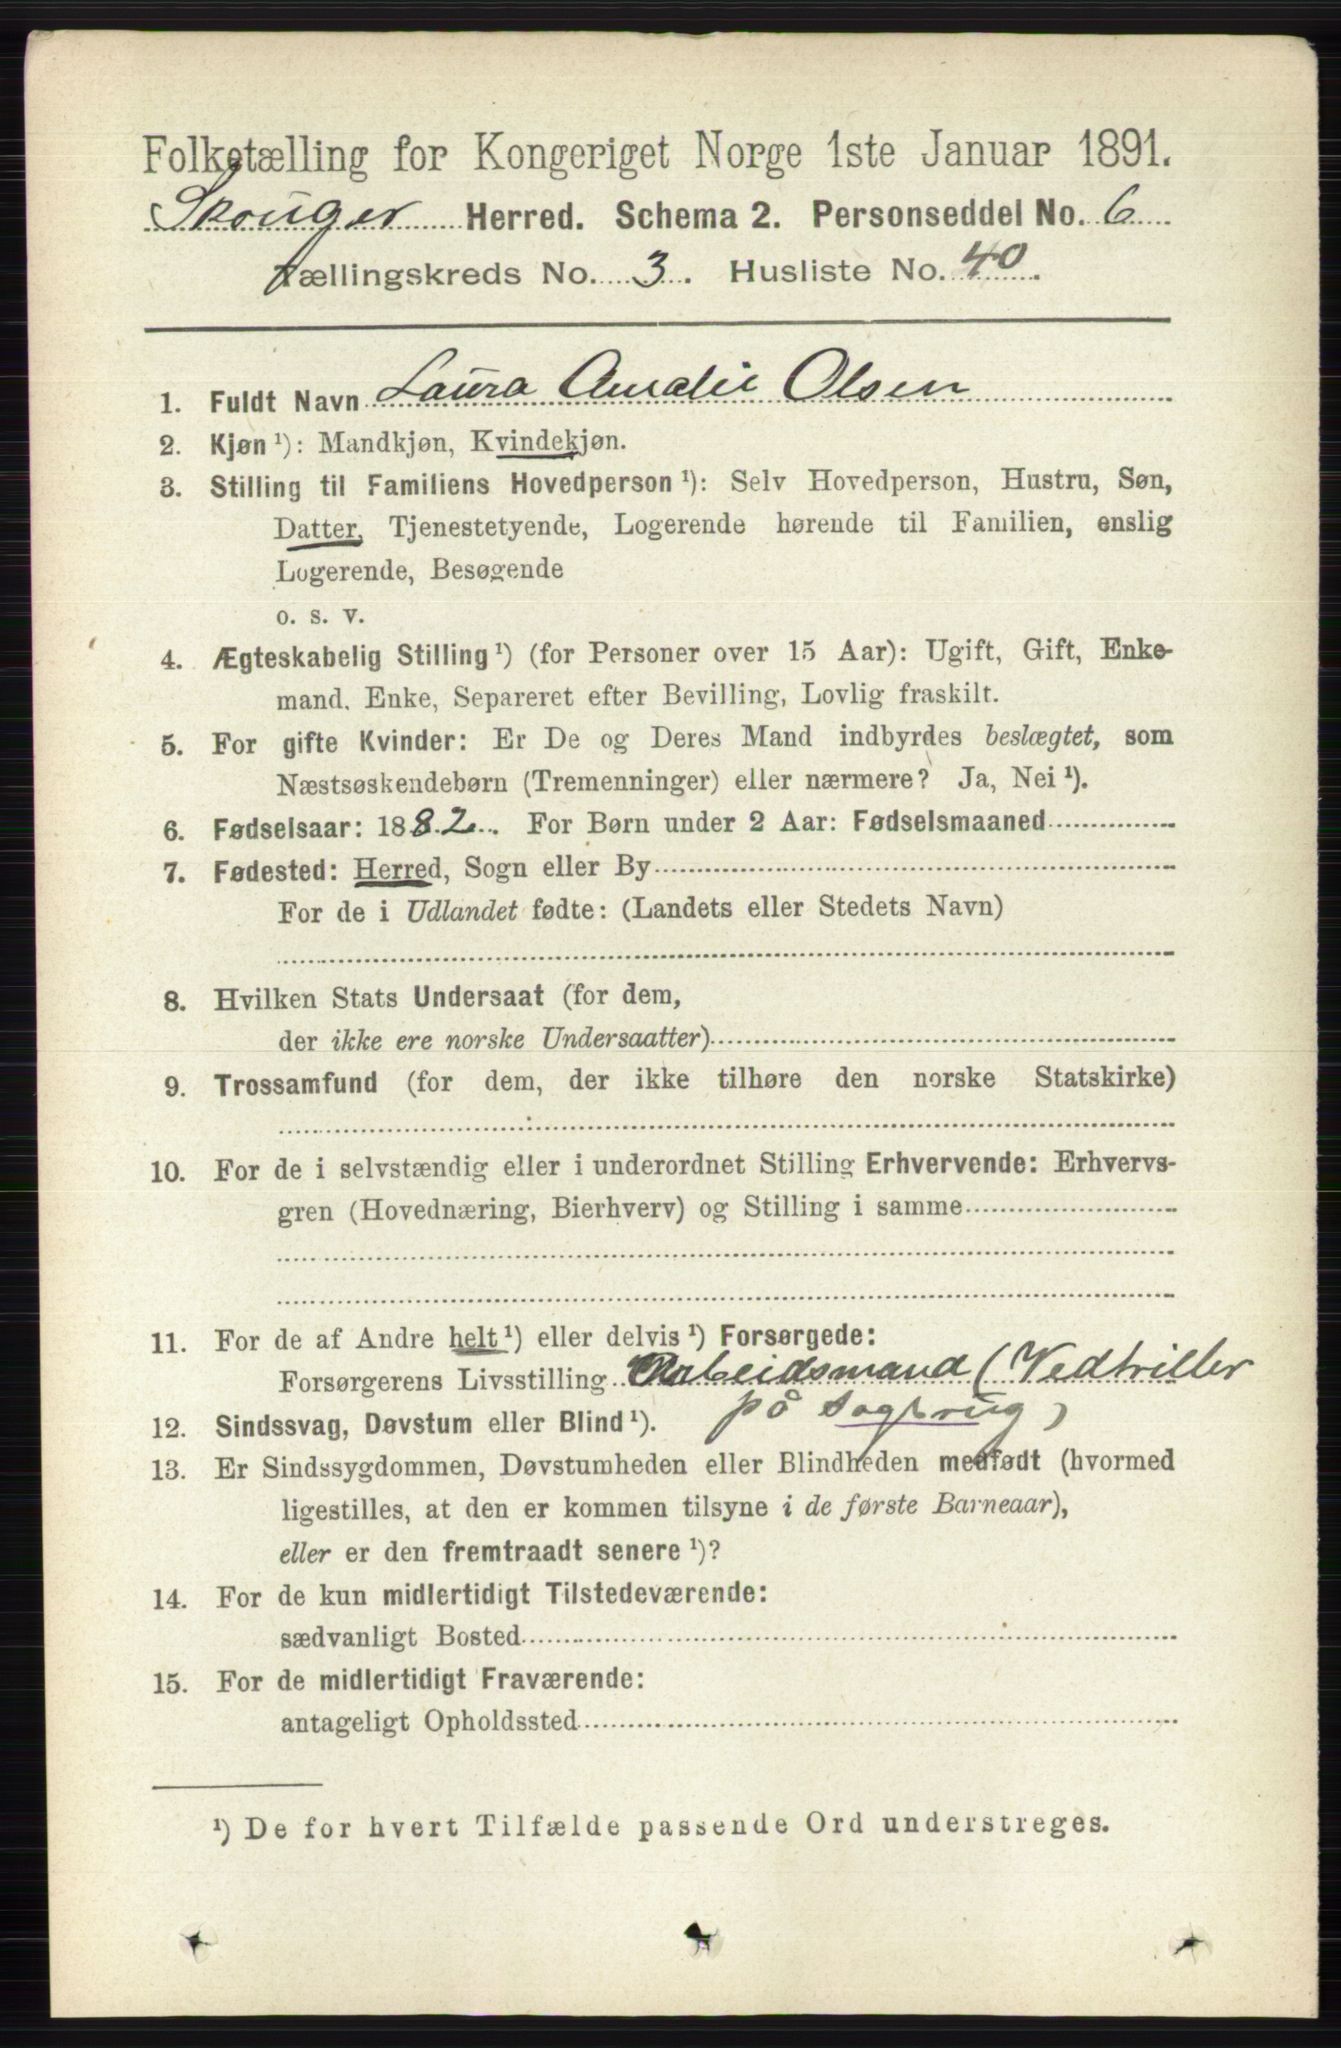 Folketælling for Kongeriget Norge 1ste Januar 1891.
Skouger Herred. Schema 2. Personseddel No. 6
Tællingskreds No. 3. Husliste No. 40.
1. Fuldt Navn Laura Amalie Olsen
2. Kjøn ¹): Mandkjøn, Kvindekjøn.
3. Stilling til Familiens Hovedperson ¹): Selv Hovedperson, Hustru, Søn,
Datter, Tjenestetyende, Logerende hørende til Familien, enslig
Logerende, Besøgende
o. s. v.
4. Ægteskabelig Stilling ¹) (for Personer over 15 Aar): Ugift, Gift, Enke-
mand, Enke, Separeret efter Bevilling, Lovlig fraskilt.
5. For gifte Kvinder: Er De og Deres Mand indbyrdes beslægtet, som
Næstsøskendebørn (Tremenninger) eller nærmere? Ja, Nei ¹).
6. Fødselsaar: 1882. For Børn under 2 Aar: Fødselsmaaned
7. Fødested: Herred, Sogn eller By
For de i Udlandet fødte: (Landets eller Stedets Navn)
8. Hvilken Stats Undersaat (for dem,
der ikke ere norske Undersaatter)
9. Trossamfund (for dem, der ikke tilhøre den norske Statskirke)
10. For de i selvstændig eller i underordnet Stilling Erhvervende: Erhvervs-
gren (Hovednæring, Bierhverv) og Stilling i samme
11. For de af Andre helt ¹) eller delvis ¹) Forsørgede:
Forsørgerens Livsstilling Arbeidsmand (Vedtriller
på Sagbrug)
12. Sindssvag, Døvstum eller Blind ¹).
13. Er Sindssygdommen, Døvstumheden eller Blindheden medfødt (hvormed
ligestilles, at den er kommen tilsyne i de første Barneaar),
eller er den fremtraadt senere ¹)?
14. For de kun midlertidigt Tilstedeværende:
sædvanligt Bosted
15. For de midlertidigt Fraværende:
antageligt Opholdssted
¹) De for hvert Tilfælde passende Ord understreges.